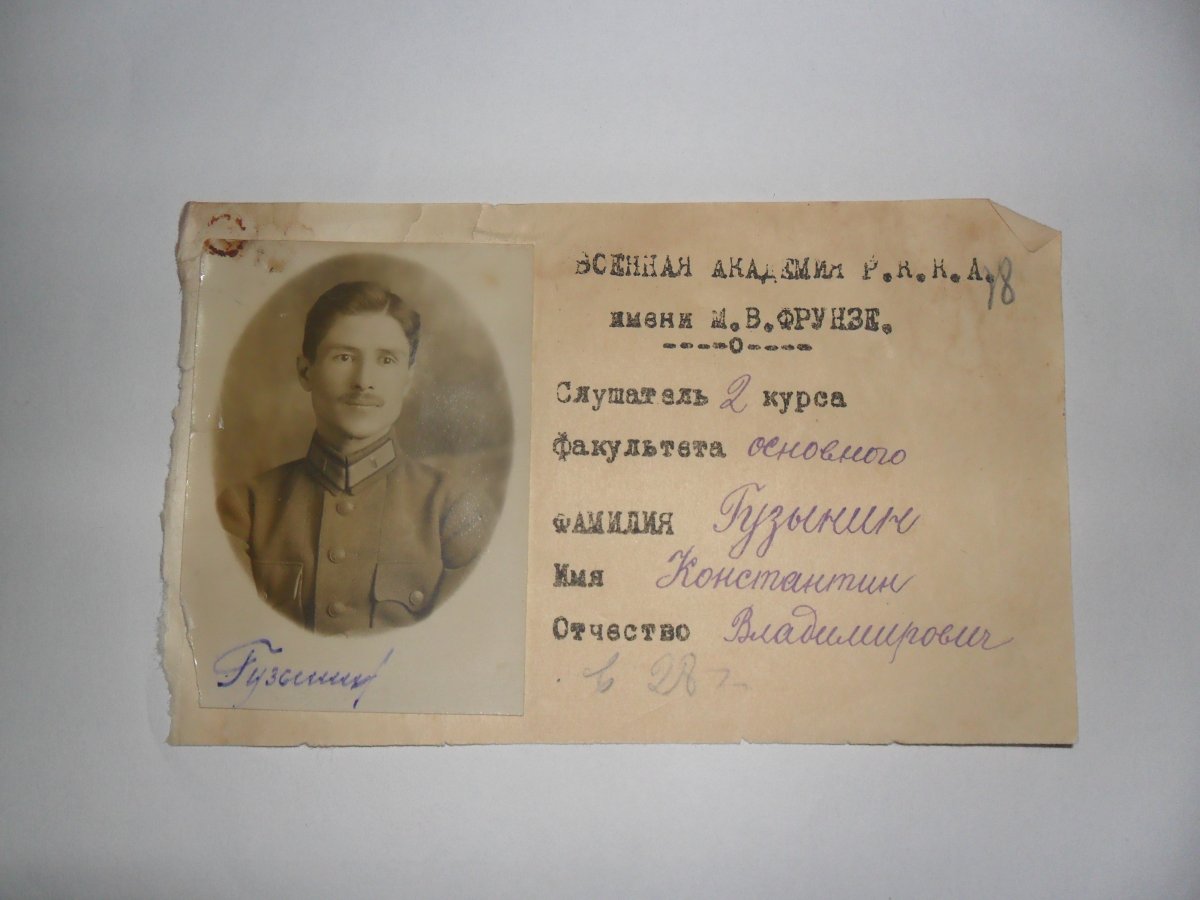 ВОЕННАЯ АКАДЕМИЯ Р.К.К.А.
18
имени М.В.ФРУНЗЕ.
-----О-----
Слушатель 2 курса
факультета основного
ФАМИЛИЯ Гузынин
Имя Константин
Отчество Владимирович
в 28 г.
Гузынин